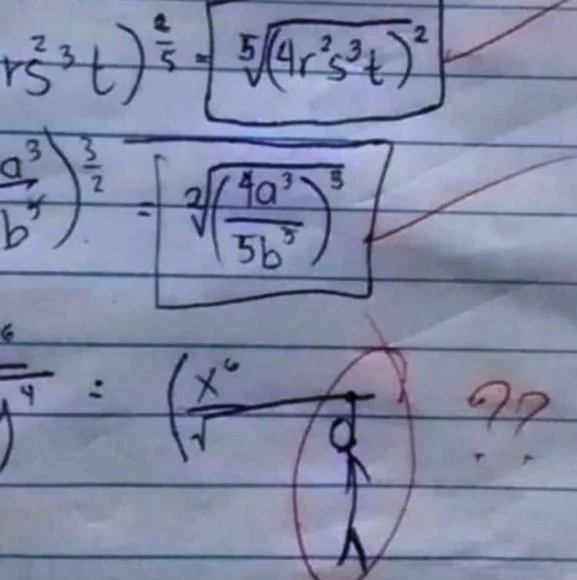 rs² ³t)^(2/5) = ⁵√(4r²s³t)²
a³/b⁵)^(3/2) = ²√(4a³/5b⁵)³
⁶/y⁴ = (x⁶/√
??